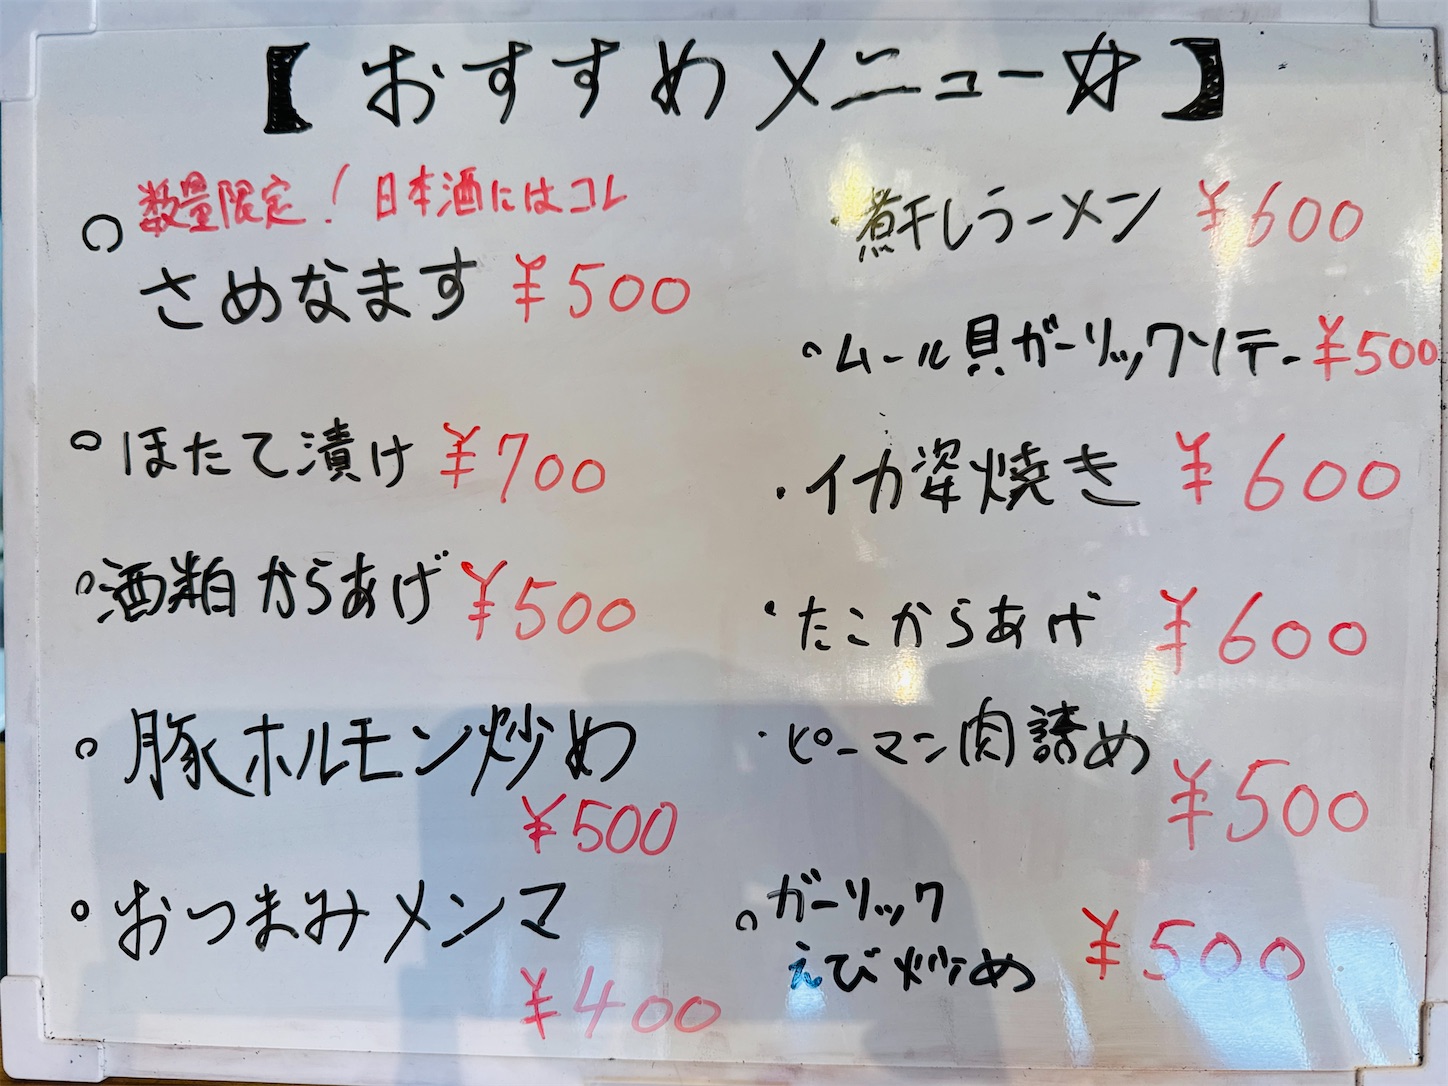 【おすすめメニュー☆】
数量限定！日本酒にはコレ
○ さめなます ¥500
○ ほたて漬け ¥700
○ 酒粕からあげ ¥500
○ 豚ホルモン炒め
¥500
○ おつまみメンマ
¥400
・煮干しラーメン ¥600
○ムール貝ガーリックソテー ¥500
・イカ姿焼き ¥600
・たこからあげ ¥600
・ピーマン肉詰め
¥500
○ガーリック
えび炒め ¥500